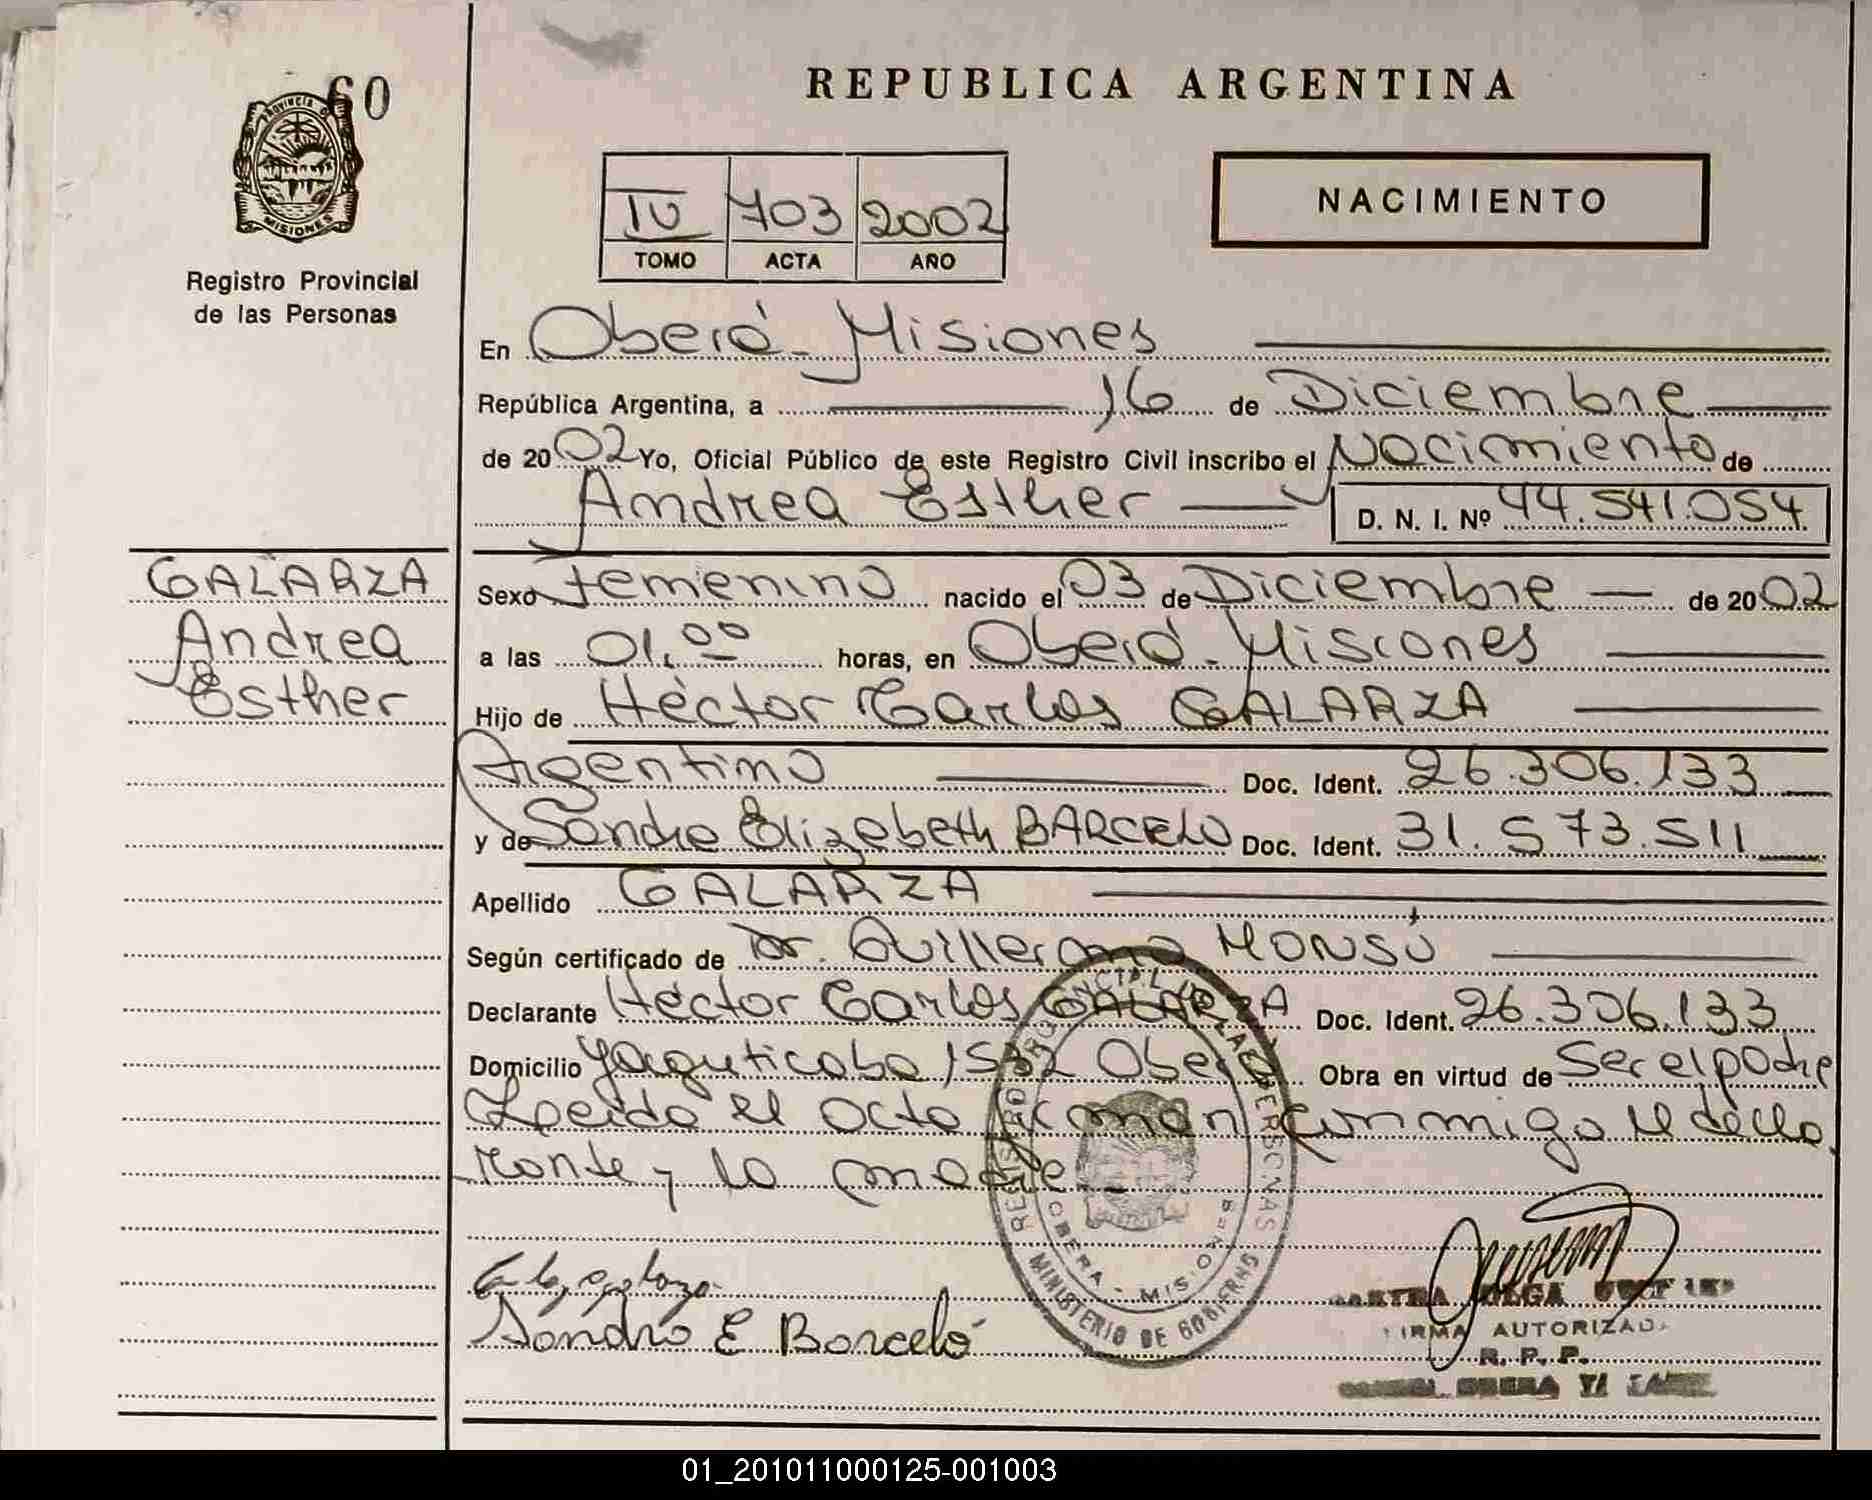 60
PROVINCIA DE
MISIONES
Registro Provincial
de las Personas
REPUBLICA ARGENTINA
NACIMIENTO
IV 703 2002
TOMO ACTA AÑO
En Oberá - Misiones
República Argentina, a 16 de Diciembre
de 2002 Yo, Oficial Público de este Registro Civil inscribo el Nacimiento de
Andrea Esther D. N. I. Nº 44.541.054
GALARZA
Andrea
Esther
Sexo femenino nacido el 03 de Diciembre de 2002
a las 01,00 horas, en Oberá - Misiones
Hijo de Héctor Carlos GALARZA
Argentino Doc. Ident. 26.306.133
y de Sandra Elizabeth BARCELO Doc. Ident. 31.573.511
Apellido GALARZA
Según certificado de Dr. Guillermo MONSÚ
Declarante Héctor Carlos GALARZA Doc. Ident. 26.306.133
Domicilio Yaguticaba 1532 Oberá Obra en virtud de Ser el padre
Leída el acta firman conmigo el decla
rante y la madre
REGISTRO PROVINCIAL DE LAS PERSONAS
OBERA - MISIONES
MINISTERIO DE GOBIERNO
Sandra E Barceló
OLGA
FIRMA AUTORIZADA
R. P. P.
OBERA
01_201011000125-001003